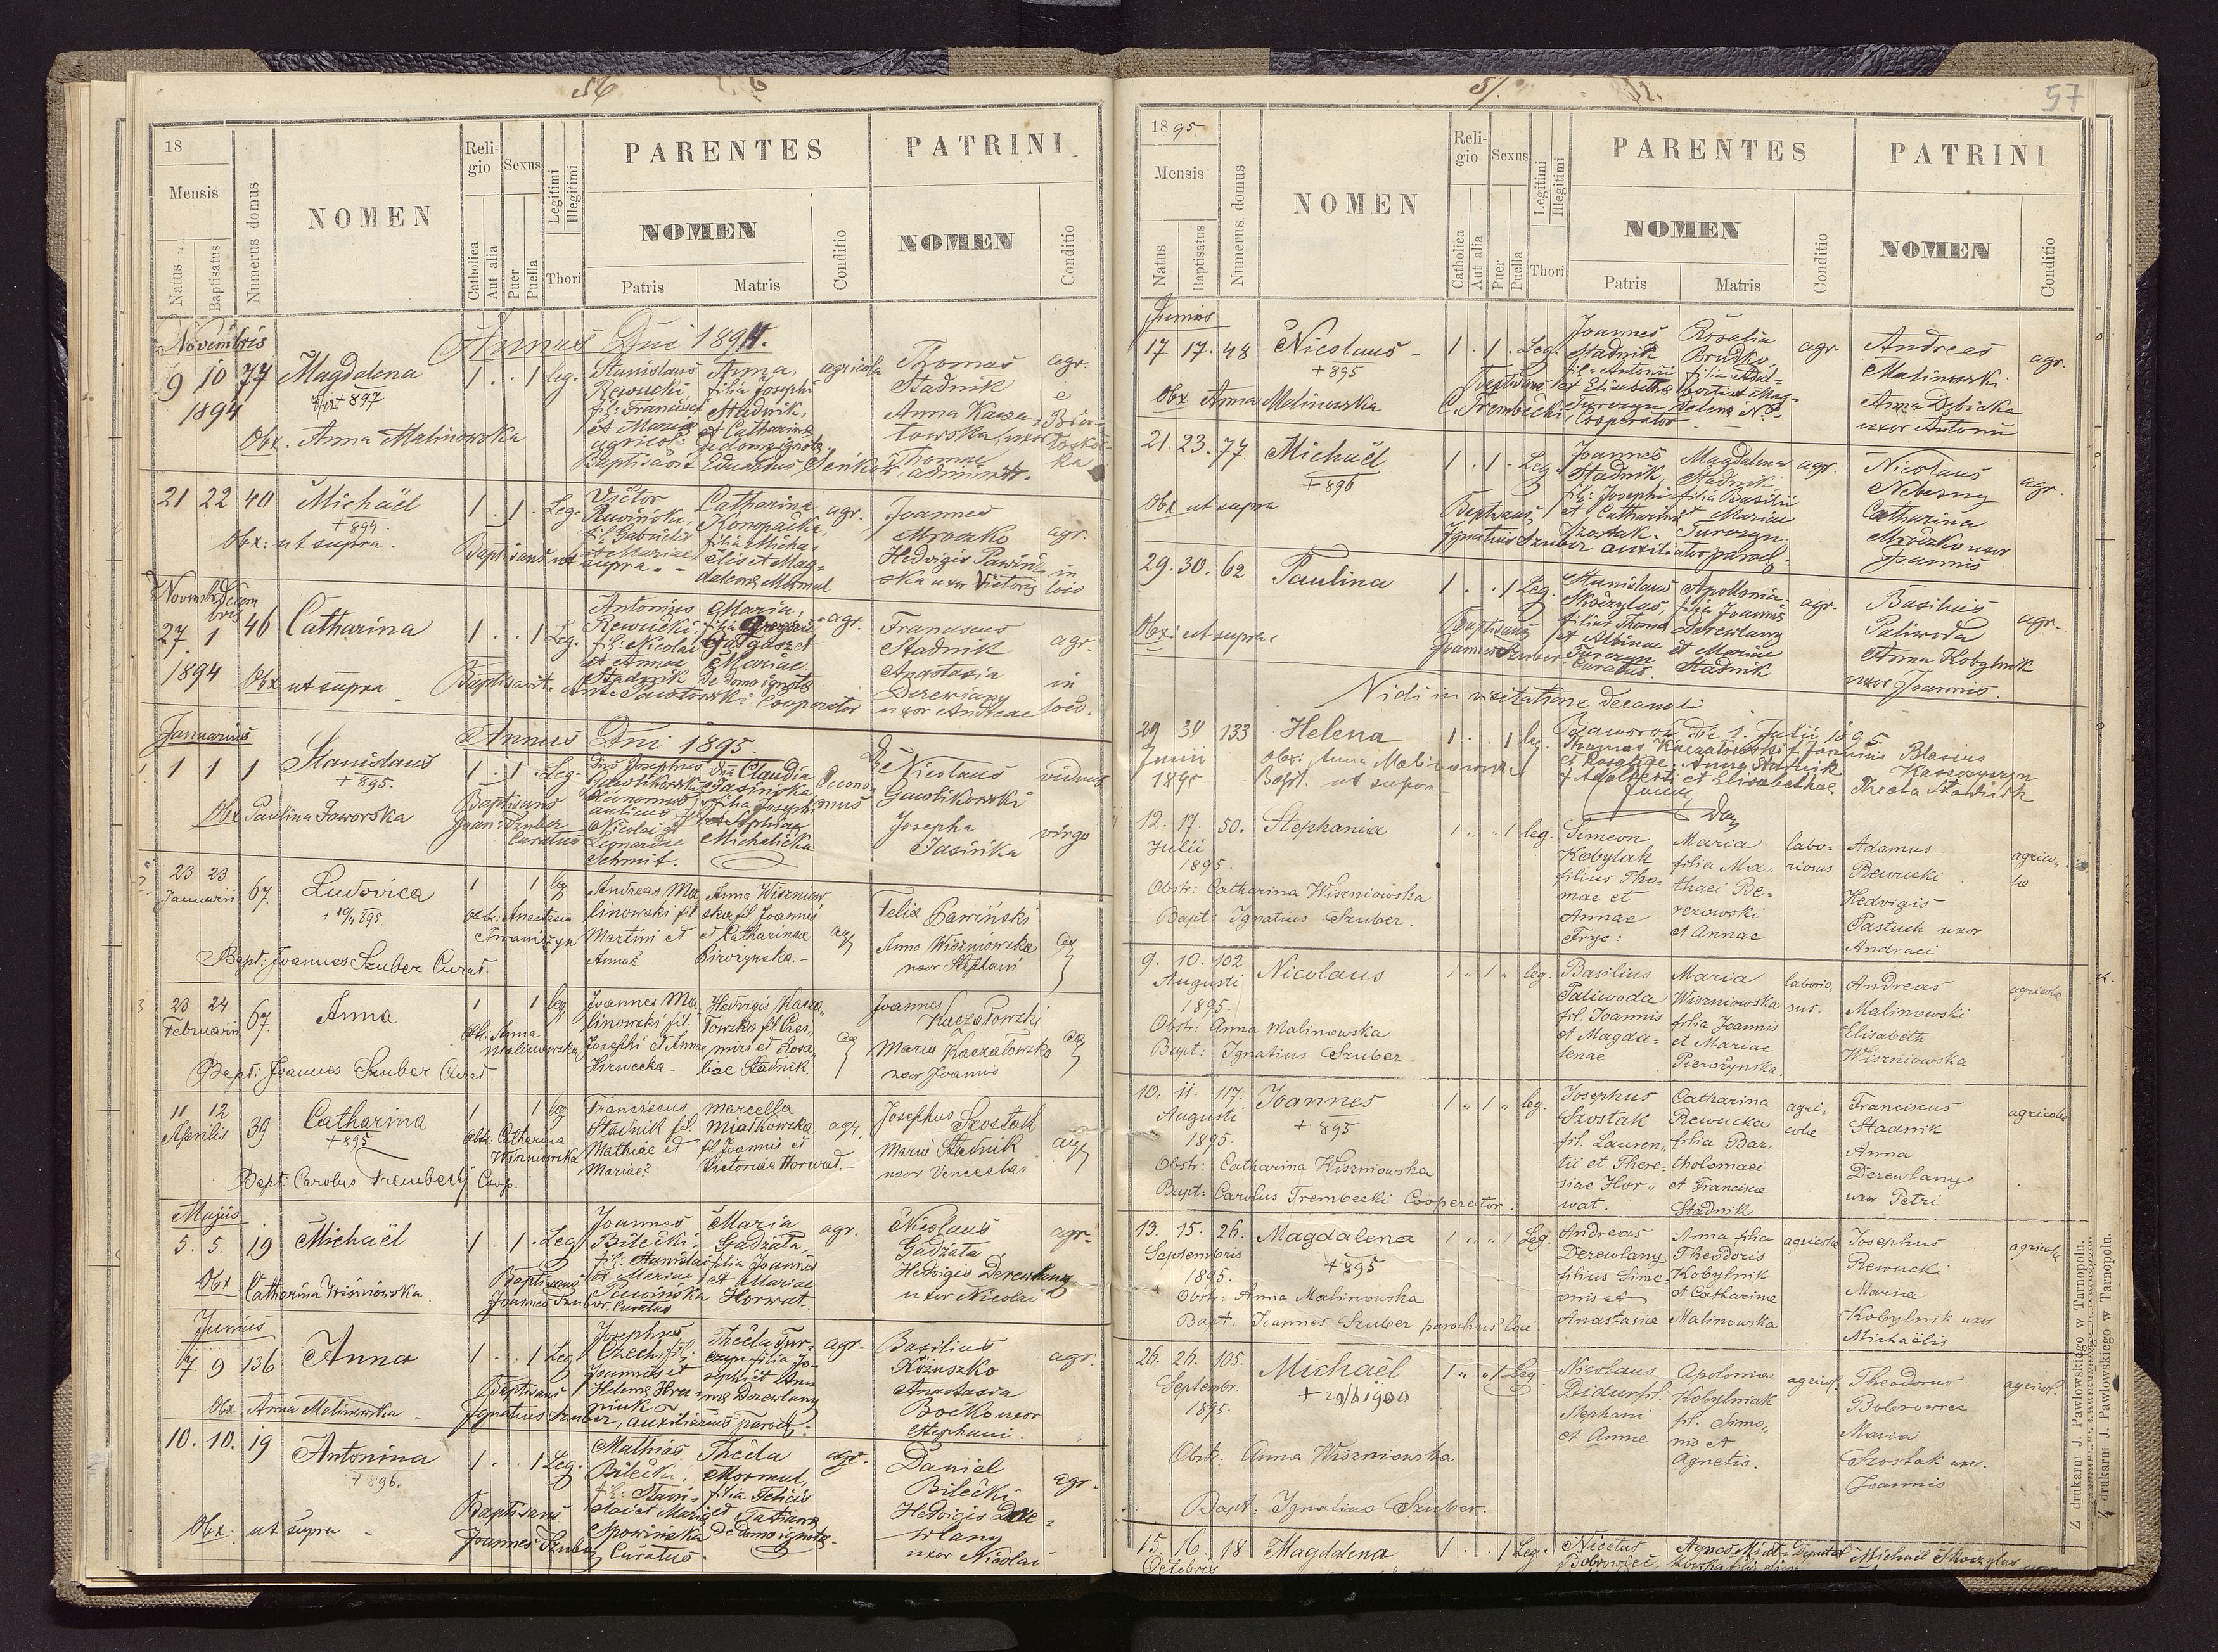 56
18
Mensis
Natus
Baptisatus
Numerus domus
NOMEN
Religio
Catholica
Aut alia
Sexus
Puer
Puella
Legitimi
Illegitimi
Thori
PARENTES
NOMEN
Patris
Matris
Conditio
PATRINI
NOMEN
Conditio
Novembris
Annus Dni 1894.
9 10 77 Magdalena 1 . . 1 Leg. Stanislaus Anna, agricola Thomas agr.
1894
+ 897
Rewucki, filia Josephi Stadnik
fil: Francisci Stadnik, Anna Kacza-
et Mariae et Catharina towska uxor
agricol: de domo ignota. Thomae
Obx. Anna Malinowska
Baptisavit Eduardus administr.
21 22 40 Michaël 1 . 1 . Leg. Victor Catharina agr. Joannes
+ 894.
Pawiński, Konopacka, Mroczko agr.
fil. Gabrielis filia Micha- Hedvigis Pawiń-
Obx: ut supra. Baptisans ut supra. et Mariae elis et Mag- ska uxor Victoris in loco
dalena Mormul
Novemb. Decembris
27. 1 46 Catharina 1 . . 1 Leg. Antonius Maria, agr. Franciscus agr.
Rewucki, filia Stadnik
fil: Nicolai Anastasia
et Annae Mariae Derewlany
1894 Stadnik de domo ignota uxor Andreae in loco.
Obx ut supra. Baptisavit Cooperator
Januarius
Annus Dni 1895.
1 1 1 Stanislaus 1 . 1 . Leg. Dns Josephus Dna Claudia Oecono- Nicolaus viduus
+ 895.
Gawlikowski Jasińska mus Gawlikowski
Oeconomus filia Josephi
Obx Paulina Jaworska Baptisans Nicolai et et Sophiae Josepha virgo
Joan: Szuber Leonardae Michalicka Jasińska
Curatus Schmit.
23 23 67. Ludovica 1 1 leg Andreas Ma Anna Wiszniow
Januarii
+ 19/4 895.
Obx: Anastasia linowski fil ska fil Joannis Felix Pawiński
Iwaniszyn Martini et et Catharinae agr Anna Wiszniowska agr
Annae Pirozynska.- uxor Stephani
Bapt: Joannes Szuber Curat.
23 24 67. Anna 1 1 leg Joannes Ma Hedvigis Kacza Joannes
Februarii
Obx: Anna linowski fil. Towska fil Casi, Kaczatowski
Malinowska Josephi et Annae miri et Rosa, agr Maria Kaczatowska agr
Hirwecka- liae Stadnik. uxor Joannis
Bapt: Joannes Szuber Curat.
11 12 39 Catharina 1 1 leg Franciscus Marcella Josephus Szostak
Aprilis
+ 895
Obx: Catharina Stadnik fil Miatkowska agr. Maria Stadnik agr
Wiszniowska Mathiae et fil Joannis et uxor Venceslai
Mariae? Victoriae Horwat.-
Bapt: Carolus Trembecki Coop.
Majus
5. 5. 19 Michaël 1 . 1 . Leg Joannes Maria agr. Nicolaus agr.
Bilecki, Gadzała, Gadzała
fil: Stanislai filia Joannis Hedvigis Derewlany
Obx Catharina Wiśniowska. Baptisans et Mariae et Mariae uxor Nicolai
Joannes Szuber Curatus Horwat.
Junius
7 9 136 Anna 1 . . 1 Leg Josephus Thecla Tur- agr. Basilius agr.
Czech, fil: czyn filia Jo- Kożuszko
Joannis et sephi et An- Anastasia
Obx Anna Malinowska. Baptisans Helena Hra- na Derewlany Bocko uxor
Ignatius Szuber, auxiliarius paroch. Stephani.
10. 10. 19 Antonina 1 . . 1 Leg. Mathias Thecla agr. Daniel agr.
+ 896.
Bilecki, Mormul, Bilecki
fil: Stani- filia Felicis Hedvigis Dere-
Obx: ut supra Baptisans slai et Maria et Tatiana wlany
Joannes Szuber Curatus. de domo ignota. uxor Nicolai
57.
57
1895
Mensis
Natus
Baptisatus
Numerus domus
NOMEN
Religio
Catholica
Aut alia
Sexus
Puer
Puella
Legitimi
Illegitimi
Thori
PARENTES
NOMEN
Patris
Matris
Conditio
PATRINI
NOMEN
Conditio
Junius
17 17. 48 Nicolaus 1 . 1 . Leg. Joannes Rosalia agr Andreas agr.
+ 895
Stadnik Brudko Malinowski
fil: Antonii filia Adal- Anna Dębicka
Obx Anna Malinowska Baptisans et Elisabetha berti et Mag- uxor Antonii
C. Trembecki Turczyn dalena N.
Cooperator
21 23. 77. Michaël 1 . 1 . Leg. Joannes Magdalena agr. Nicolaus agr.
+ 896
Stadnik, Stadnik Nebesny
fil: Josephi filia Basilii Catharina
Obx ut supra Baptisans et Catharina et Mariae Mroczko uxor
Szostak. Turczyn. Joannis
Ignatius Szuber auxiliator paroch.
29. 30. 62 Paulina 1 . . 1 Leg. Stanislaus Apollonia agr. Basilius agr.
Skoczylas, filia Joannis Paliwoda
filius Thomae Derewlany Anna Kobylnik
Obx: ut supra. Baptisans et Albinae et Mariae uxor Joannis.
Joannes Szuber Turczyn Stadnik
Curatus.
Vidi in visitatione decanali
Baworow Die 1. Julii 1895
29 30 133 Helena 1 . . 1 leg. Thomas Kaczatowski Blasius
Junii
1895
obx: Anna Malinowska et Rosaliae: Anna Stadnik Kaszczyszyn
Bapt. ut supra f Adalberti et Elisabethae Thecla Stadnik
12. 17. 50. Stephania 1 . . 1 leg. Simeon Maria labo- Adamus agrico-
Julii
1895.
Kobylak filia Ma- riosus Rewucki lae
filius Tho- thaei Be- Hedvigis
Obstr: Catharina Wiszniowska mae et rezowski Pastuch uxor
Bapt: Ignatius Szuber. Annae et Annae Andraei
Fryc:
9. 10. 102 Nicolaus 1 " 1 " leg. Basilius Maria laborio, Andreas agricola
Augusti
1895.
Paliwoda Wiszniowska sus. Malinowski
fil. Joannis filia Joannis Elisabeth
Obstr: Anna Malinowska et Magda- et Mariae Wiszniowska
Bapt: Ignatius Szuber. lenae Pierożynska.
10. 11. 117. Joannes 1 " 1 " leg. Josephus Catharina agri, Franciscus agricola
Augusti
1895.
+ 895
Szostak Rewucka colae Stadnik
fil. Lauren, filia Bar, Anna
Obstr: Catharina Wiszniowska tii et There- tholomaei Derewlany
siae Hor" et Franciscae uxor Petri
Bapt: Carolus Trembecki Cooperator. wat. Stadnik
13. 15. 26. Magdalena 1 " " 1 Leg. Andreas Anna filia agricola Josephus agricola
Septembris
1895.
+ 895
Derewlany Theodoris Rewucki
filius Sime- Kobylnik Marina
Obstr: Anna Malinowska onis et et Catharinae Kobylnik uxor
Bapt: Joannes Szuber parochus loci. Anastasiae Malinowska Michaëlis
26. 26. 105. Michaël 1 " " 1 Leg. Nicolaus Apolonia agricol. Theodorus agricol.
Septembr.
1895.
+ 29/6 1900
Didur fil. Kobylniak Bobrowiec
Stephani fil. Simo, Maria
et Annae nis et Szostak uxor.
Obstr: Anna Wiszniowska Agnetis. Joannis
Bapt: Ignatius Szuber.
15. 16. 18 Magdalena 1 . . 1 Leg. Nicetas Agnes Miat- Michaël Skoczylas
Octobris
Bobrowiec,
Z drukarni J. Pawłowskiego w Tarnopolu.
Z drukarni J. Pawłowskiego w Tarnopolu.